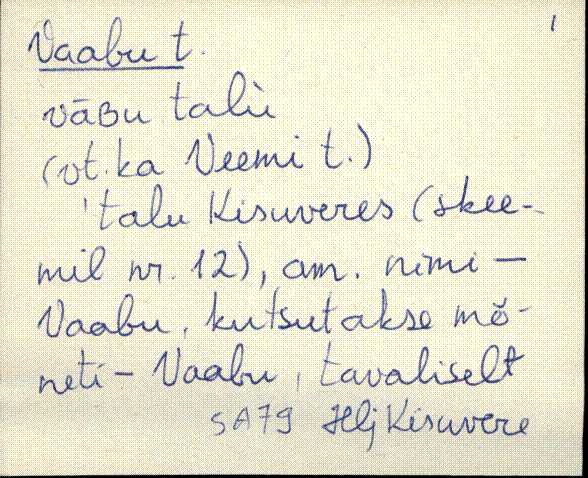 1
Vaabu t.
vāʙu talù
(vt. ka Veemi t.)
'talu Kisuveres (skee-
mil nr. 12), am. nimi –
Vaabu, kutsutakse mõ-
neti – Vaabu, tavaliselt
SA79 Hlj Kisuvere